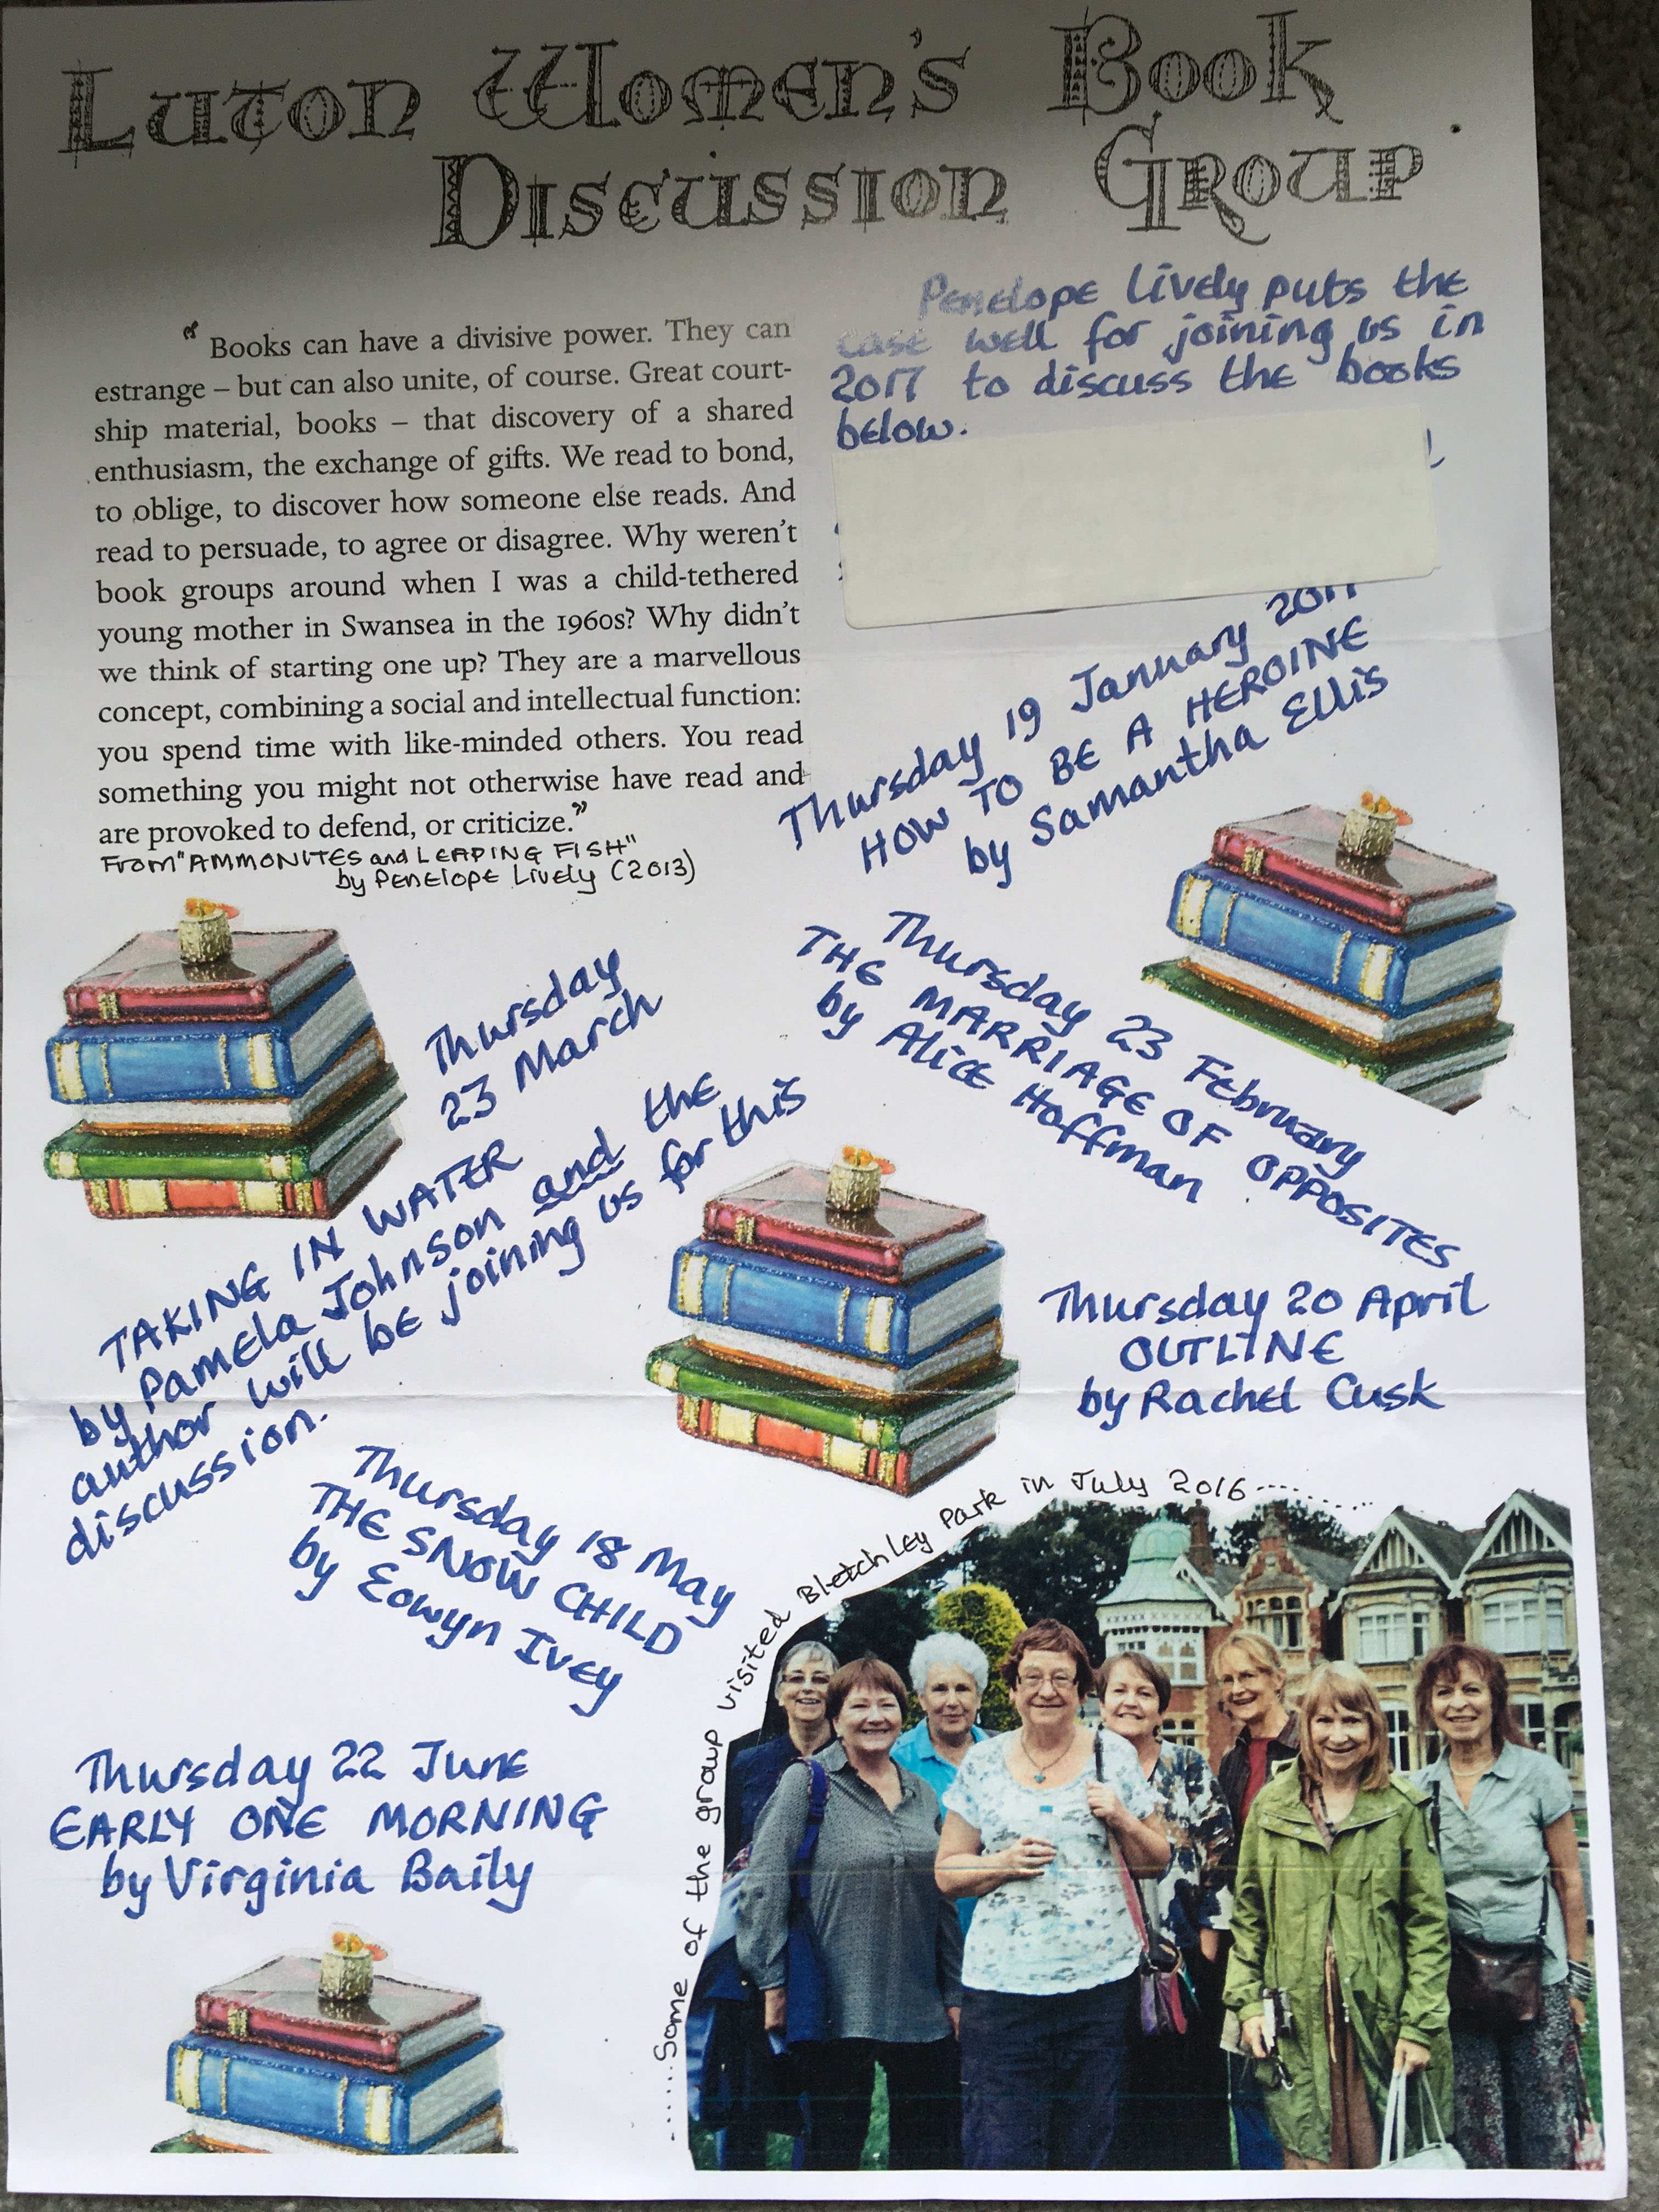 Luton Women's Book
Discussion Group
Penelope Lively puts the
case well for joining us in
2017 to discuss the books
below.
" Books can have a divisive power. They can
estrange – but can also unite, of course. Great court-
ship material, books – that discovery of a shared
enthusiasm, the exchange of gifts. We read to bond,
to oblige, to discover how someone else reads. And
read to persuade, to agree or disagree. Why weren't
book groups around when I was a child-tethered
young mother in Swansea in the 1960s? Why didn't
we think of starting one up? They are a marvellous
concept, combining a social and intellectual function:
you spend time with like-minded others. You read
something you might not otherwise have read and
are provoked to defend, or criticize."
From "AMMONITES and LEAPING FISH"
by Penelope Lively (2013)
Thursday 19 January 2017
HOW TO BE A HEROINE
by Samantha Ellis
Thursday 23 February
THE MARRIAGE OF OPPOSITES
by Alice Hoffman
Thursday
23 March
TAKING IN WATER
by Pamela Johnson and the
author will be joining us for this
discussion.
Thursday 20 April
OUTLINE
by Rachel Cusk
Thursday 18 May
THE SNOW CHILD
by Eowyn Ivey
Thursday 22 June
EARLY ONE MORNING
by Virginia Baily
......Some of the group visited Bletchley Park in July 2016..........